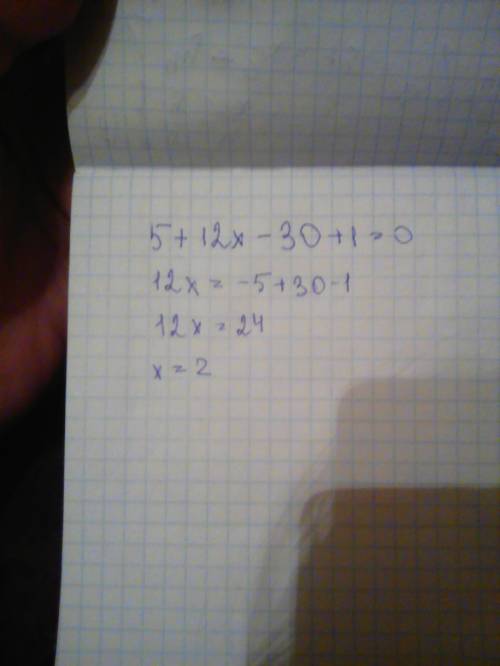 5+12x-30+1=0
12x=-5+30-1
12x=24
x=2